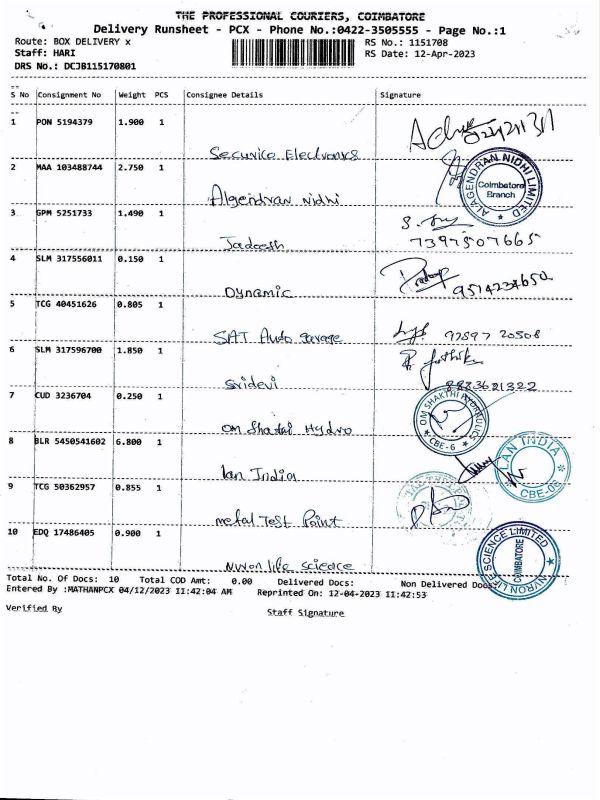 THE PROFESSIONAL COURIERS, COIMBATORE
Delivery Runsheet - PCX - Phone No.:0422-3505555 - Page No.:1
Route: BOX DELIVERY x RS No.: 1151708
Staff: HARI RS Date: 12-Apr-2023
DRS No.: DCJB115170801
S No Consignment No Weight PCS Consignee Details Signature
1 PON 5194379 1.900 1
Securico Electronics
2 MAA 103488744 2.750 1
ALAGENDRAN NIDHI LIMITED
Coimbatore
Branch
Algendran Nidhi
3 GPM 5251733 1.490 1
Jadeesh 7397507665
4 SLM 317556011 0.150 1
Dynamic 9514234652
5 TCG 40451626 0.805 1
SAT Auto garage 97897 20508
6 SLM 317596700 1.850 1
Sridevi 8883621322
7 CUD 3236704 0.250 1
OM SHAKTHI HYDRAULICS
CBE-6
Om Shatai Hydro
8 BLR 5450541602 6.800 1
LAN INDIA
CBE-08
lan India
9 TCG 50362957 0.855 1
metal Test Point
10 EDQ 17486405 0.900 1
NVRON LIFE SCIENCE LIMITED
COIMBATORE
Nvron life science
Total No. Of Docs: 10 Total COD Amt: 0.00 Delivered Docs: Non Delivered Docs:
Entered By :MATHANPCX 04/12/2023 11:42:04 AM Reprinted On: 12-04-2023 11:42:53
Verified By Staff Signature